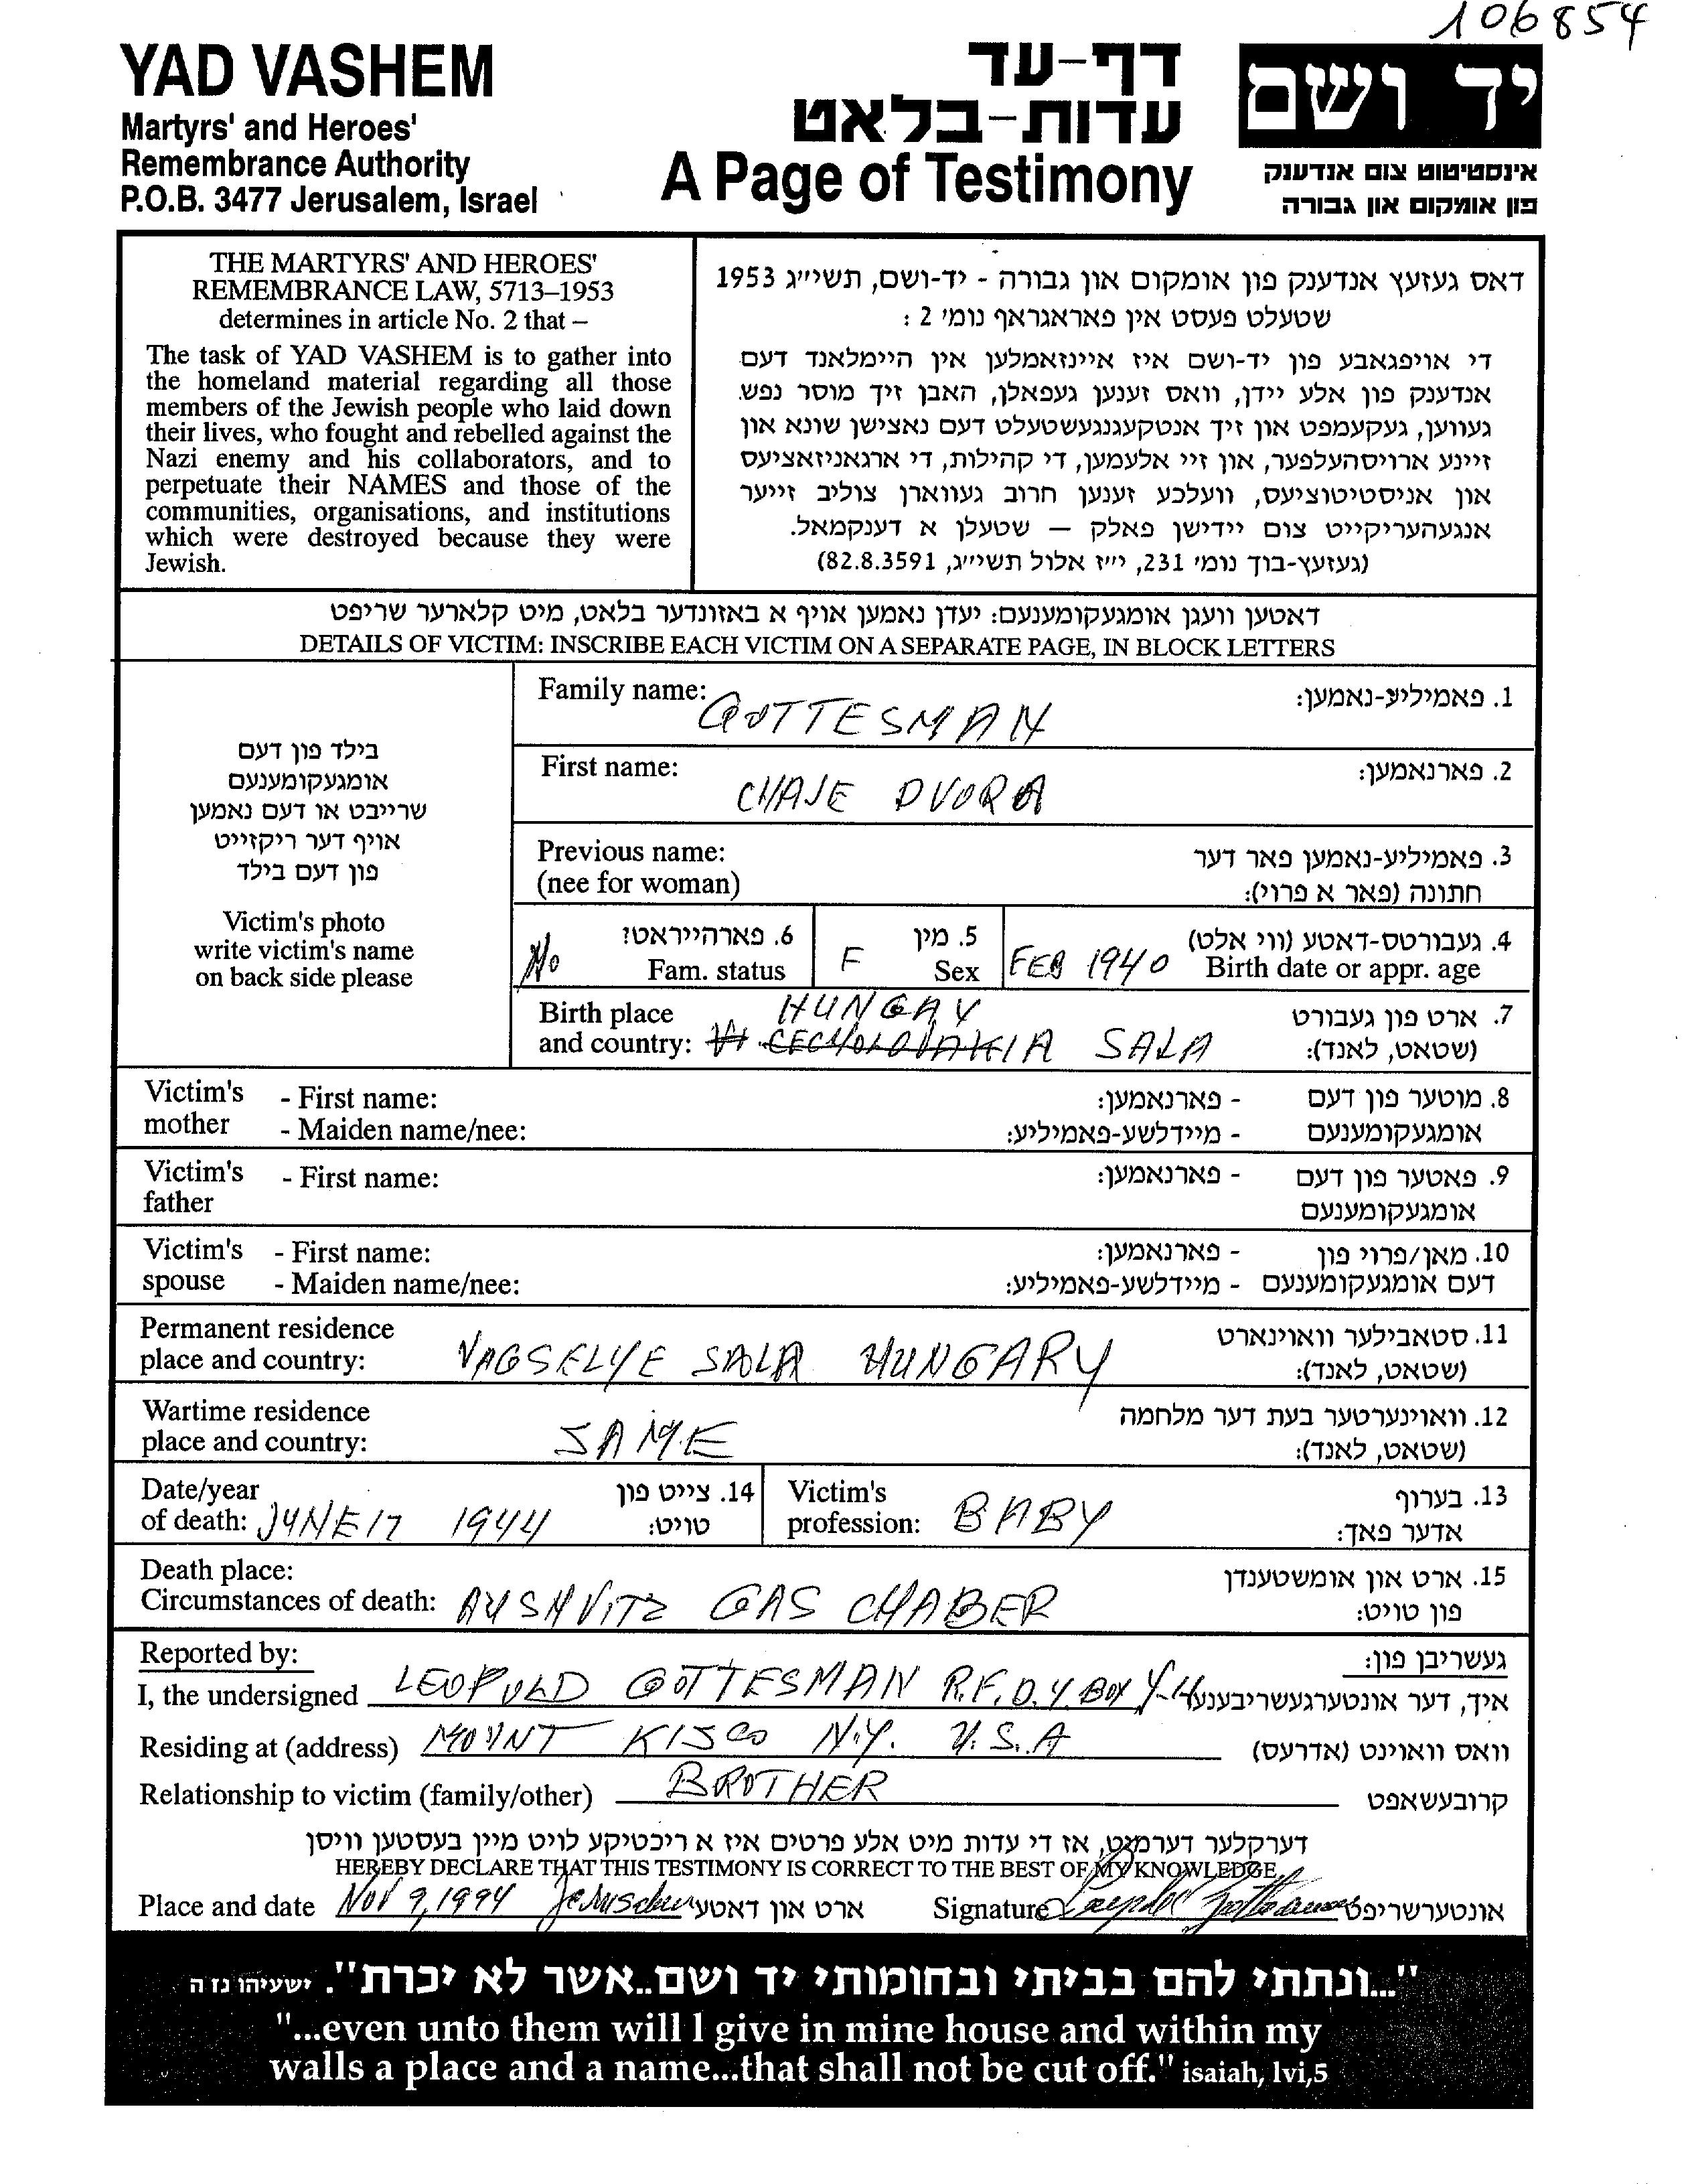 106854
YAD VASHEM
Martyrs' and Heroes'
Remembrance Authority
P.O.B. 3477 Jerusalem, Israel
דף-עד
עדות-בלאט
A Page of Testimony
יד ושם
אינסטיטוט צום אנדענק
פון אומקום און גבורה
THE MARTYRS' AND HEROES'
REMEMBRANCE LAW, 5713–1953
determines in article No. 2 that –
The task of YAD VASHEM is to gather into
the homeland material regarding all those
members of the Jewish people who laid down
their lives, who fought and rebelled against the
Nazi enemy and his collaborators, and to
perpetuate their NAMES and those of the
communities, organisations, and institutions
which were destroyed because they were
Jewish.
דאס געזעץ אנדענק פון אומקום און גבורה - יד-ושם, תשי״ג 1953
שטעלט פעסט אין פאראגראף נומ׳ 2 :
די אויפגאבע פון יד-ושם איז איינזאמלען אין היימלאנד דעם
אנדענק פון אלע יידן, וואס זענען געפאלן, האבן זיך מוסר נפש
געווען, געקעמפט און זיך אנטקעגנגעשטעלט דעם נאצישן שונא און
זיינע ארויסהעלפער, און זיי אלעמען, די קהילות, די ארגאניזאציעס
און אניסטיטוציעס, וועלכע זענען חרוב געווארן צוליב זייער
אנגעהעריקייט צום יידישן פאלק — שטעלן א דענקמאל.
(געזעץ-בוך נומ׳ 231, י״ז אלול תשי״ג, 82.8.3591)
דאטען וועגן אומגעקומענעם: יעדן נאמען אויף א באזונדער בלאט, מיט קלארער שריפט
DETAILS OF VICTIM: INSCRIBE EACH VICTIM ON A SEPARATE PAGE, IN BLOCK LETTERS
בילד פון דעם
אומגעקומענעם
שרייבט או דעם נאמען
אויף דער ריקזייט
פון דעם בילד
Victim's photo
write victim's name
on back side please
Family name: GOTTESMAN 1. פאמיליע-נאמען:
First name: CHAJE DVORA 2. פארנאמען:
Previous name: 3. פאמיליע-נאמען פאר דער
(nee for woman) חתונה (פאר א פרוי):
No 6. פארהייראט? F 5. מין FEB 1940 4. געבורטס-דאטע (ווי אלט)
Fam. status Sex Birth date or appr. age
Birth place HUNGAY 7. ארט פון געבורט
and country: CECHOLOVAKIA SALA (שטאט, לאנד):
Victim's - First name: - פארנאמען: 8. מוטער פון דעם
mother - Maiden name/nee: - מיידלשע-פאמיליע: אומגעקומענעם
Victim's - First name: - פארנאמען: 9. פאטער פון דעם
father אומגעקומענעם
Victim's - First name: - פארנאמען: 10. מאן/פרוי פון
spouse - Maiden name/nee: - מיידלשע-פאמיליע: דעם אומגעקומענעם
Permanent residence 11. סטאבילער וואוינארט
place and country: VAGSELYE SALA HUNGARY (שטאט, לאנד):
Wartime residence 12. וואוינערטער בעת דער מלחמה
place and country: SAME (שטאט, לאנד):
Date/year 14. צייט פון Victim's 13. בערוף
of death: JUNE 17 1944 טויט: profession: BABY אדער פאך:
Death place: 15. ארט און אומשטענדן
Circumstances of death: AUSHVITZ GAS CHABER פון טויט:
Reported by: געשריבן פון:
I, the undersigned LEOPOLD GOTTESMAN R.F.D.4 BOX Y-4 איך, דער אונטערגעשריבענע
Residing at (address) MOUNT KISCO N.Y. U.S.A וואס וואוינט (אדרעס)
Relationship to victim (family/other) BROTHER קרובעשאפט
דערקלער דערמיט, אז די עדות מיט אלע פרטים איז א ריכטיקע לויט מיין בעסטען וויסן
HEREBY DECLARE THAT THIS TESTIMONY IS CORRECT TO THE BEST OF MY KNOWLEDGE
Place and date Nov 9, 1994 Jerusalem ארט און דאטע Signature Leopold Gottesman אונטערשריפט
"...ונתתי להם בביתי ובחומותי יד ושם..אשר לא יכרת". ישעיהו נז ה
"...even unto them will I give in mine house and within my
walls a place and a name...that shall not be cut off." isaiah, lvi,5